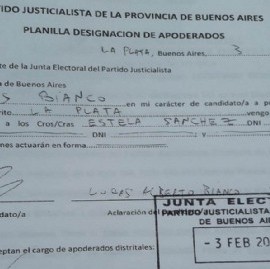 TIDO JUSTICIALISTA DE LA PROVINCIA DE BUENOS AIRES
PLANILLA DESIGNACION DE APODERADOS
LA PLATA, Buenos Aires, 3
te de la Junta Electoral del Partido Justicialista
a de Buenos Aires
S BIANCO en mi carácter de candidato/a a p
rito LA PLATA vengo
a los Cros/Cras ESTELA SANCHEZ DNI
DNI ; y
nes actuarán en forma
LUCAS ALBERTO BIANCO
didato/a Aclaración del
JUNTA ELEC
PARTIDO JUSTICIALISTA
DE BUENOS AI
- 3 FEB 20
eptan el cargo de apoderados distritales: